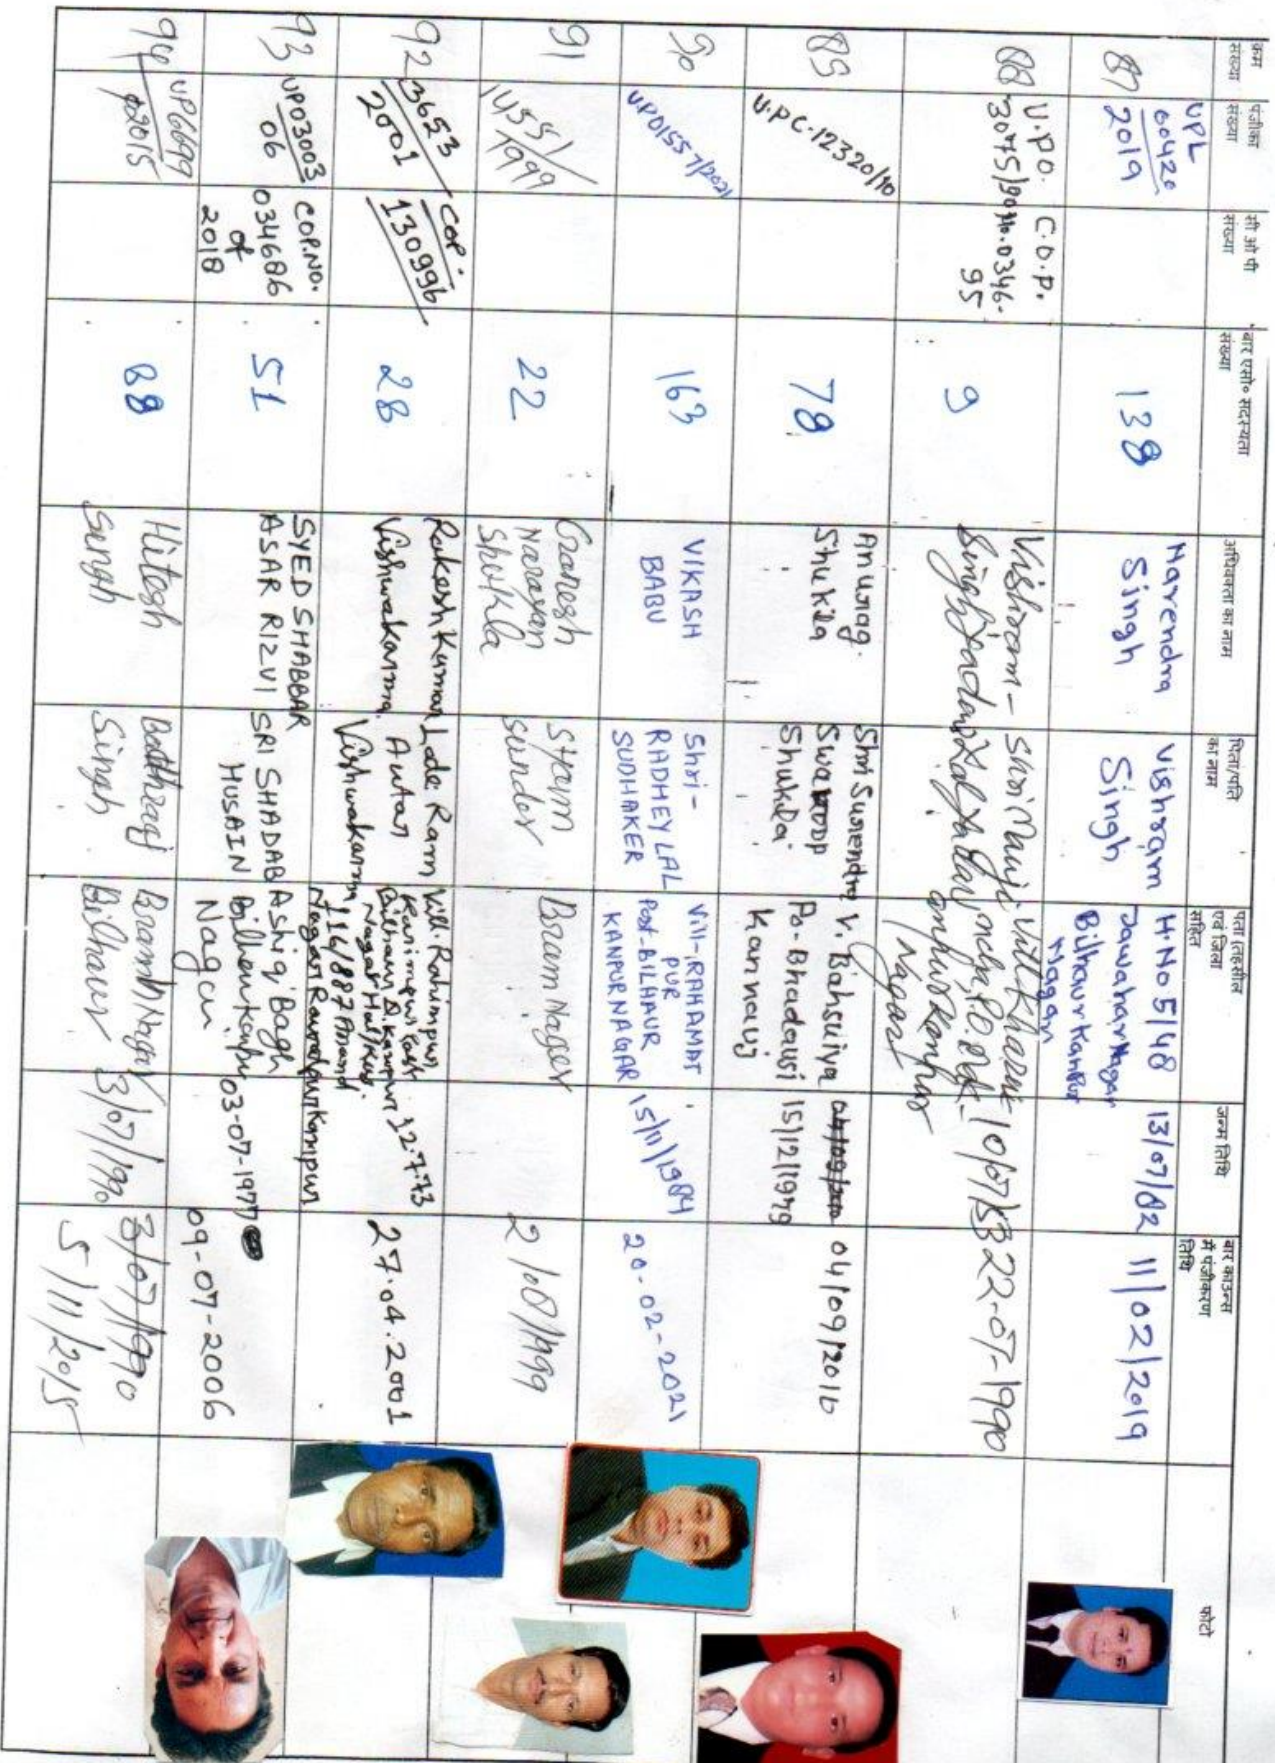 क्रम संख्या
पंजीका संख्या
सी ओ पी संख्या
बार एसो० सदस्यता संख्या
अधिवक्ता का नाम
पिता/पति का नाम
पता तहसील एवं जिला सहित
जन्म तिथि
बार काउन्स में पंजीकरण तिथि
फोटो
87
UPL
60420
2019
138
Narendra
Singh
Vishram
Singh
H.No 5/48
Jawahar Nagar
Bilhaur Kanpur
Nagar
13/07/82
11/02/2019
88
U.P.O.
3075/90
C.O.P.
No.0346-
95
9
Vishram-
Singh Yadav
Shri Manji
Lal Yadav
Vill Kharui
Kanpur
Nagar
22-07-1990
89
U.P.C.12320/10
78
Anurag.
Shukla
Shri Surendra
Swaroop
Shukla
V. Bahsuiya
Po- Bhadausi
Kannauj
15/12/1979
04/09/2010
90
UP01557/2021
163
VIKASH
BABU
Shri-
RADHEY LAL
SUDHAKER
Vill-RAHAMAT
PUR
Post-BILHAUR
KANPUR NAGAR
15/11/1984
20-02-2021
91
1455/
1999
22
Ganesh
Narayan
Shukla
Shyam
sunder
Bram Nager
2/08/1999
92
3653
2001
COP.
130996
28
Rakesh Kumar
Vishwakarma.
Late Ram
Autar
Vishwakarma
Vill. Rahimpur
Karimpur Post
Bilhaur D. Kanpur
Nagar
116/887 Anand
Nagar Rawatpur Kanpur
12.7.73
27.04.2001
93
UP03003
06
COP.NO.
034686
of
2018
51
SYED SHABBAR
ASAR RIZVI
SRI SHADAB
HUSAIN
Ashiq Bagh
Bilhaur Kanpur
Nagar
03-07-1977
09-07-2006
94
UP6699
2015
88
Hitesh
Singh
Singh
Bramh Nagar
Bilhaur
3/07/1990
3/07/1990
5/11/2015